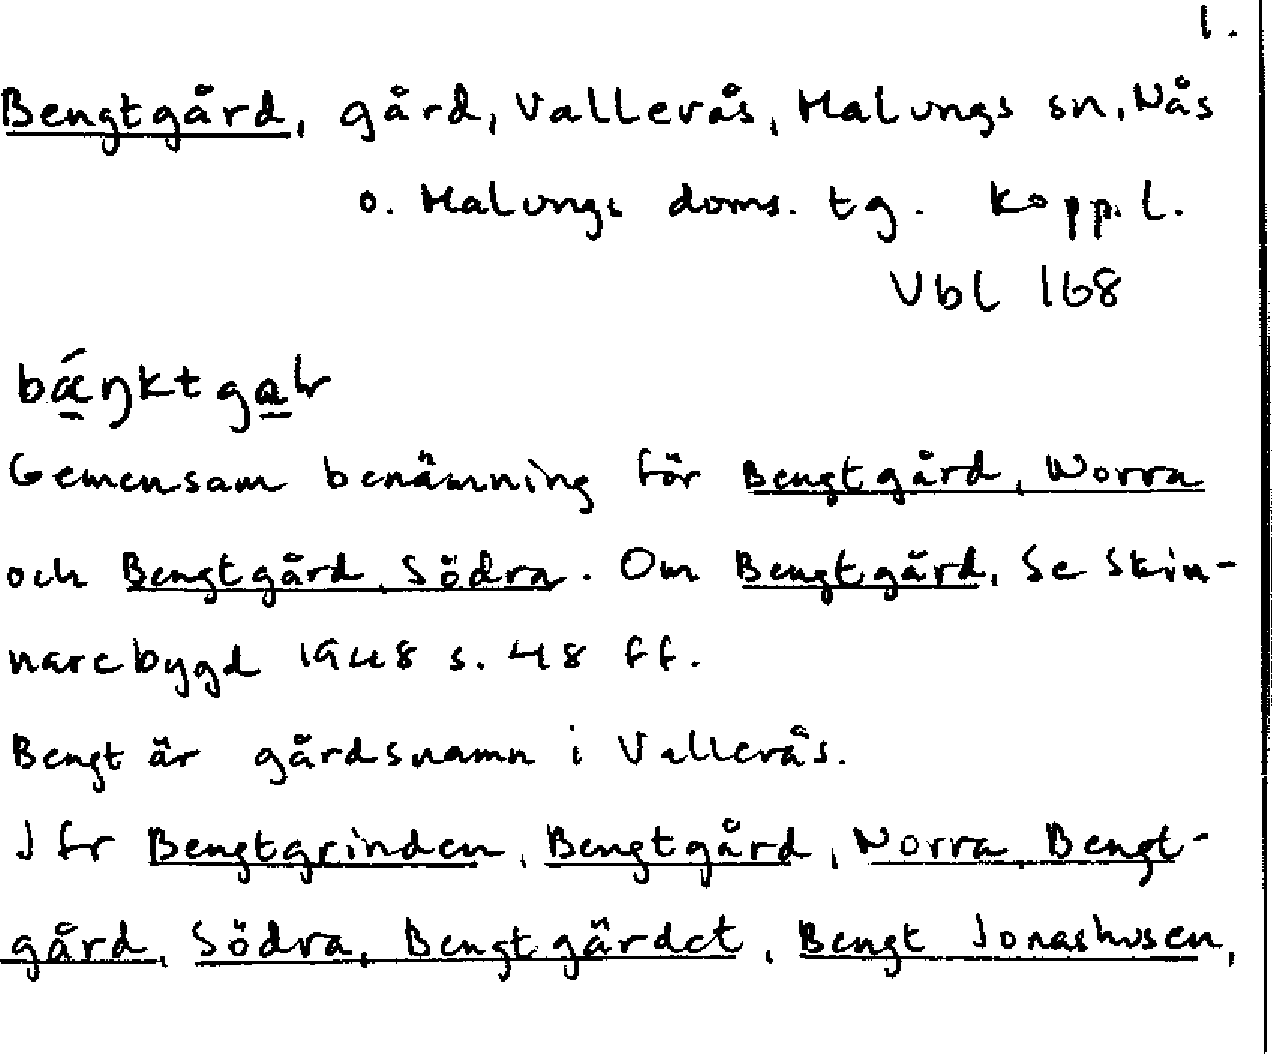 1.
Bengtgård, gård, Vallerås, Malungs sn, Nås
o. Malungs doms. tg. Kopp. l.
Vbl 168
Gemensam benämning för Bengtgård, Norra
och Bengtgård, Södra. Om Bengtgård, se Skin-
narebygd 1948 s. 48 ff.
Bengt är gårdsnamn i Vallerås.
Jfr Bengtgrinden, Bengtgård, Norra, Bengt-
gård, Södra, Bengtgärdet, Bengt Jonashusen,